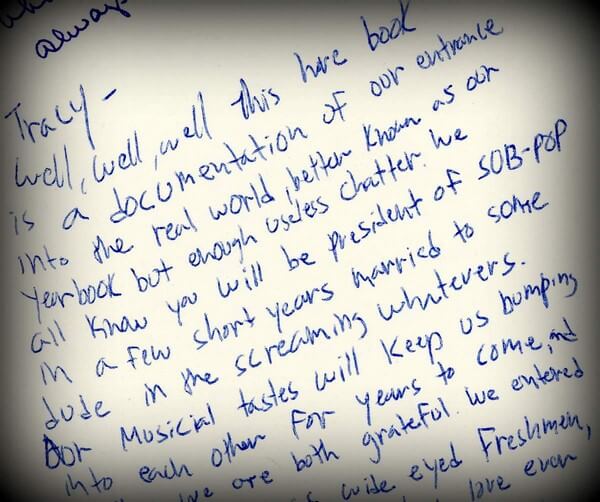 always
Tracy-
Well, well, well this here book
is a documentation of our entrance
into the real world, better known as our
yearbook but enough useless chatter. We
all know you will be president of SUB-POP
in a few short years married to some
dude in the screaming whatevers.
Our Musicial tastes will keep us bumping
into each other for years to come, and
we are both grateful. We entered
wide eyed Freshmen,
love even